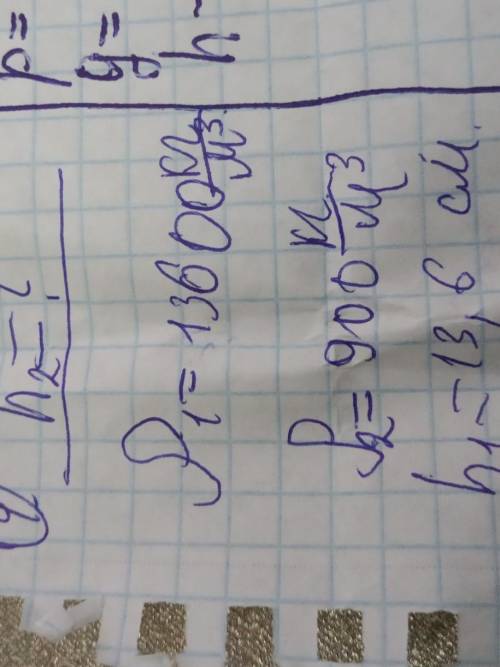 h₂=?
ρ₁=13600 кг/м³
ρ₂=900 кг/м³
h₁=13,6 см.
ρ=
g=
h